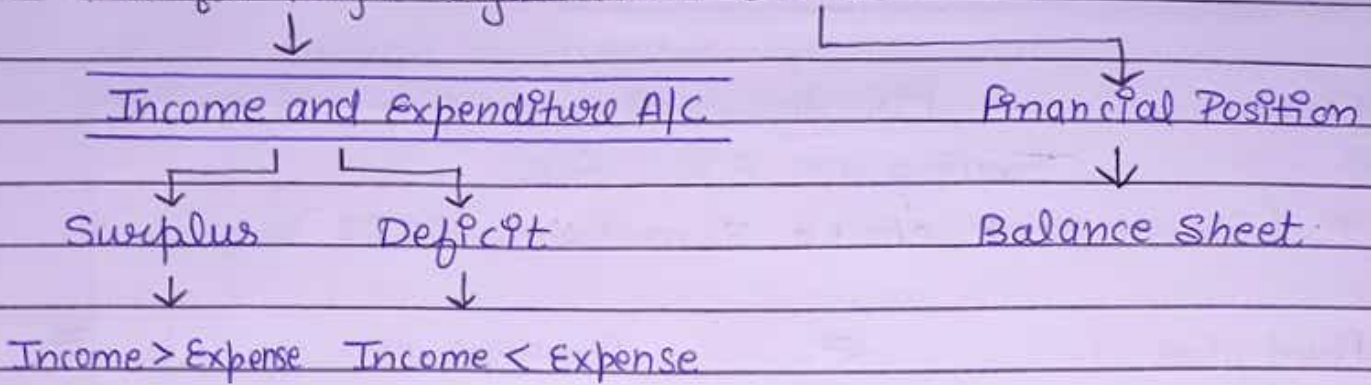 Income and Expenditure A/C Financial Position
Surplus Deficit Balance Sheet
Income > Expense Income < Expense